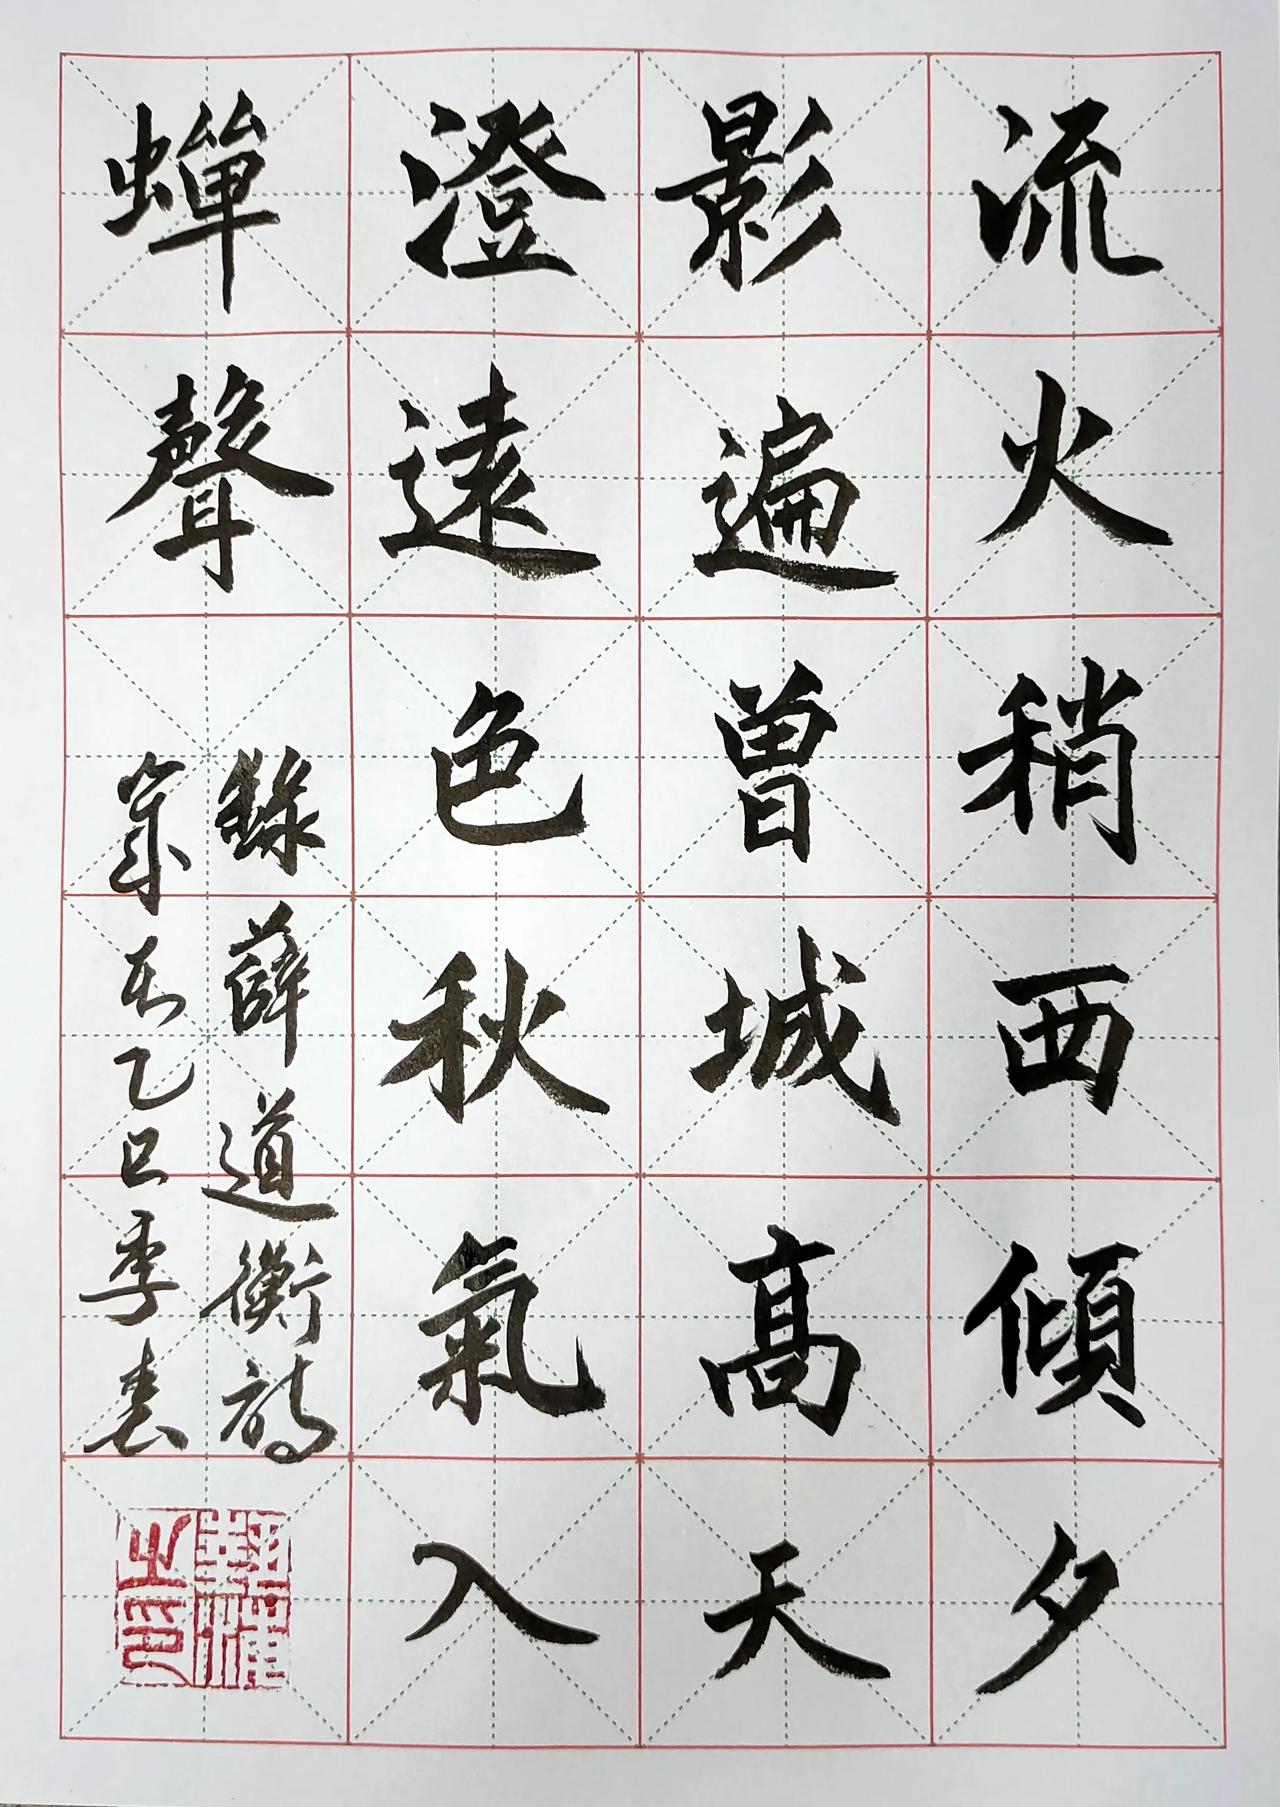 流火稍西傾夕
影遍曾城高天
澄遠色秋氣入
蟬聲
錄薛道衡詩
歲在乙巳季
之印